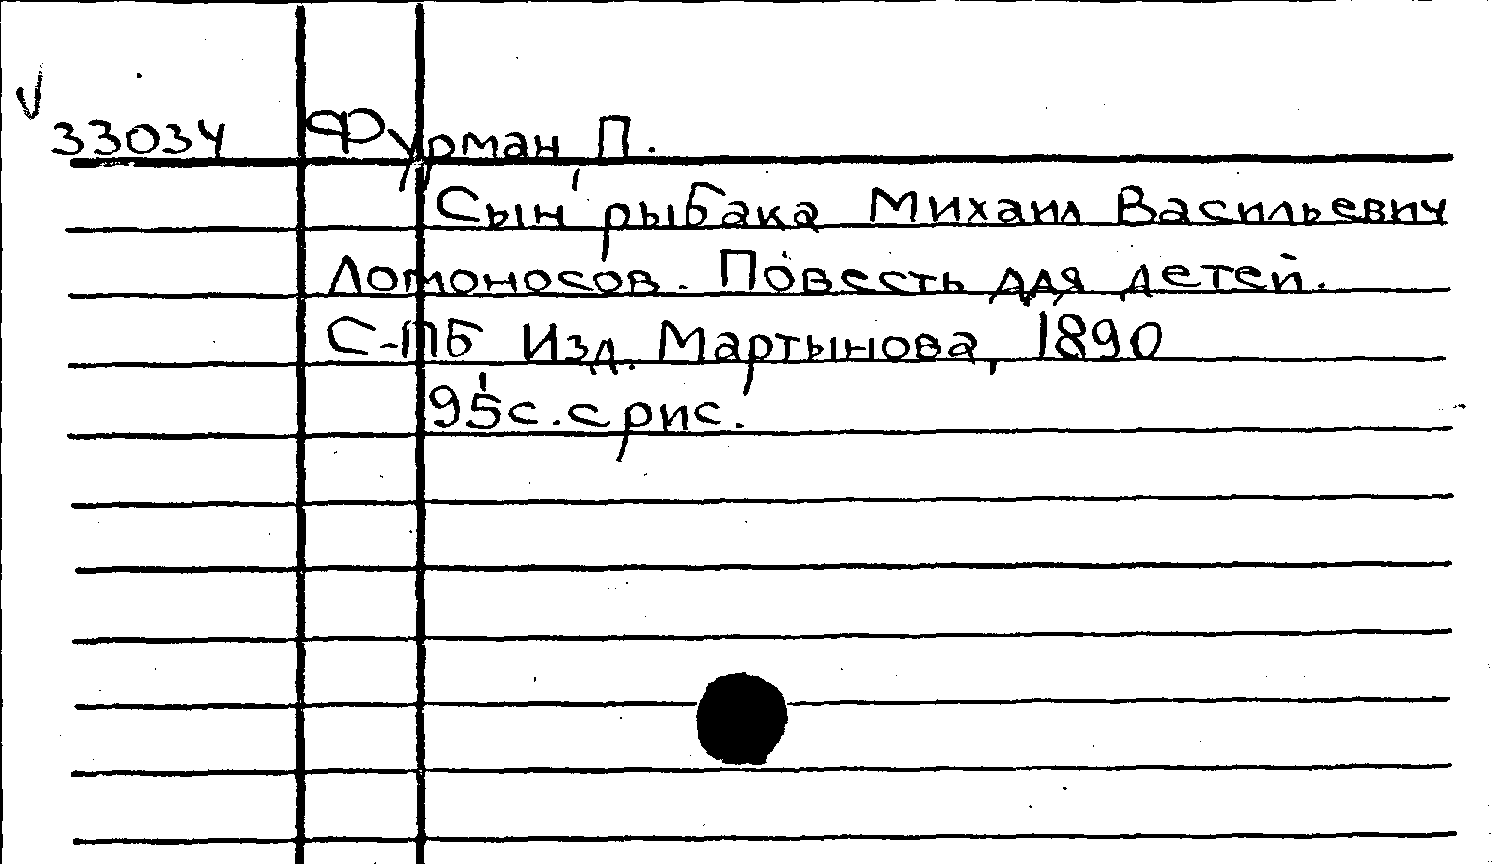 33034 Фурман, П.
Сын рыбака Михаил Васильевич
Ломоносов. Повесть для детей.
С-ПБ Изд. Мартынова, 1890
95с. с рис.